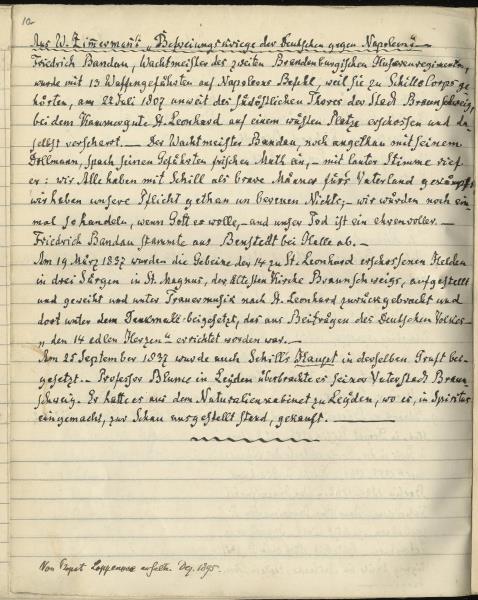 10.
Aus W. Zimmermann's „Befreiungskriege der Deutschen gegen Napoleon“
Friedrich Bandau, Wachtmeister des zweiten Brandenburgischen Husarenregimentes,
wurde mit 13 Waffengefährten auf Napoleons Befehl, weil sie zu Schills Corps ge-
hörten, am 22 Juli 1807 unweit des südöstlichen Thores der Stadt Braunschweig,
bei dem Kammergute St. Leonhard auf einem wüsten Platze erschossen und da-
selbst verscharrt. — Der Wachtmeister Bandau, noch angethan mit seinem
Dollmann, sprach seinen Gefährten frischen Muth ein, – mit lauter Stimme rief
er: wir Alle haben mit Schill als brave Männer für's Vaterland gekämpft
wir haben unsere Pflicht gethan un bereuen Nichts; – wir würden noch ein-
mal so handeln, wenn Gott es wolle, – und unser Tod ist ein ehrenvoller. —
Friedrich Bandau stammte aus Benstedt bei Halle ab. —
Am 19 März 1837 wurden die Gebeine der 14 zu St. Leonhard erschossenen Helden
in drei Särgen in St. Magnus, der ältesten Kirche Braunschweigs, aufgestellt
und geweiht und unter Trauermusik nach St. Leonhard zurückgebracht und
dort unter dem Denkmale beigesetzt, das aus Beiträgen des Deutschen Volkes –
„den 14 edlen Herzen“ errichtet worden war. —
Am 25 September 1837 wurde auch Schill's Haupt in derselben Gruft bei-
gesetzt. – Professor Blume in Leyden überbrachte es seiner Vaterstadt Braun-
schweig. Er hatte es aus dem Naturalienkabinet zu Leyden, wo es, in Spiritus
eingemacht, zur Schau ausgestellt stand, gekauft. —
Von erhalten. Dez. 1895.